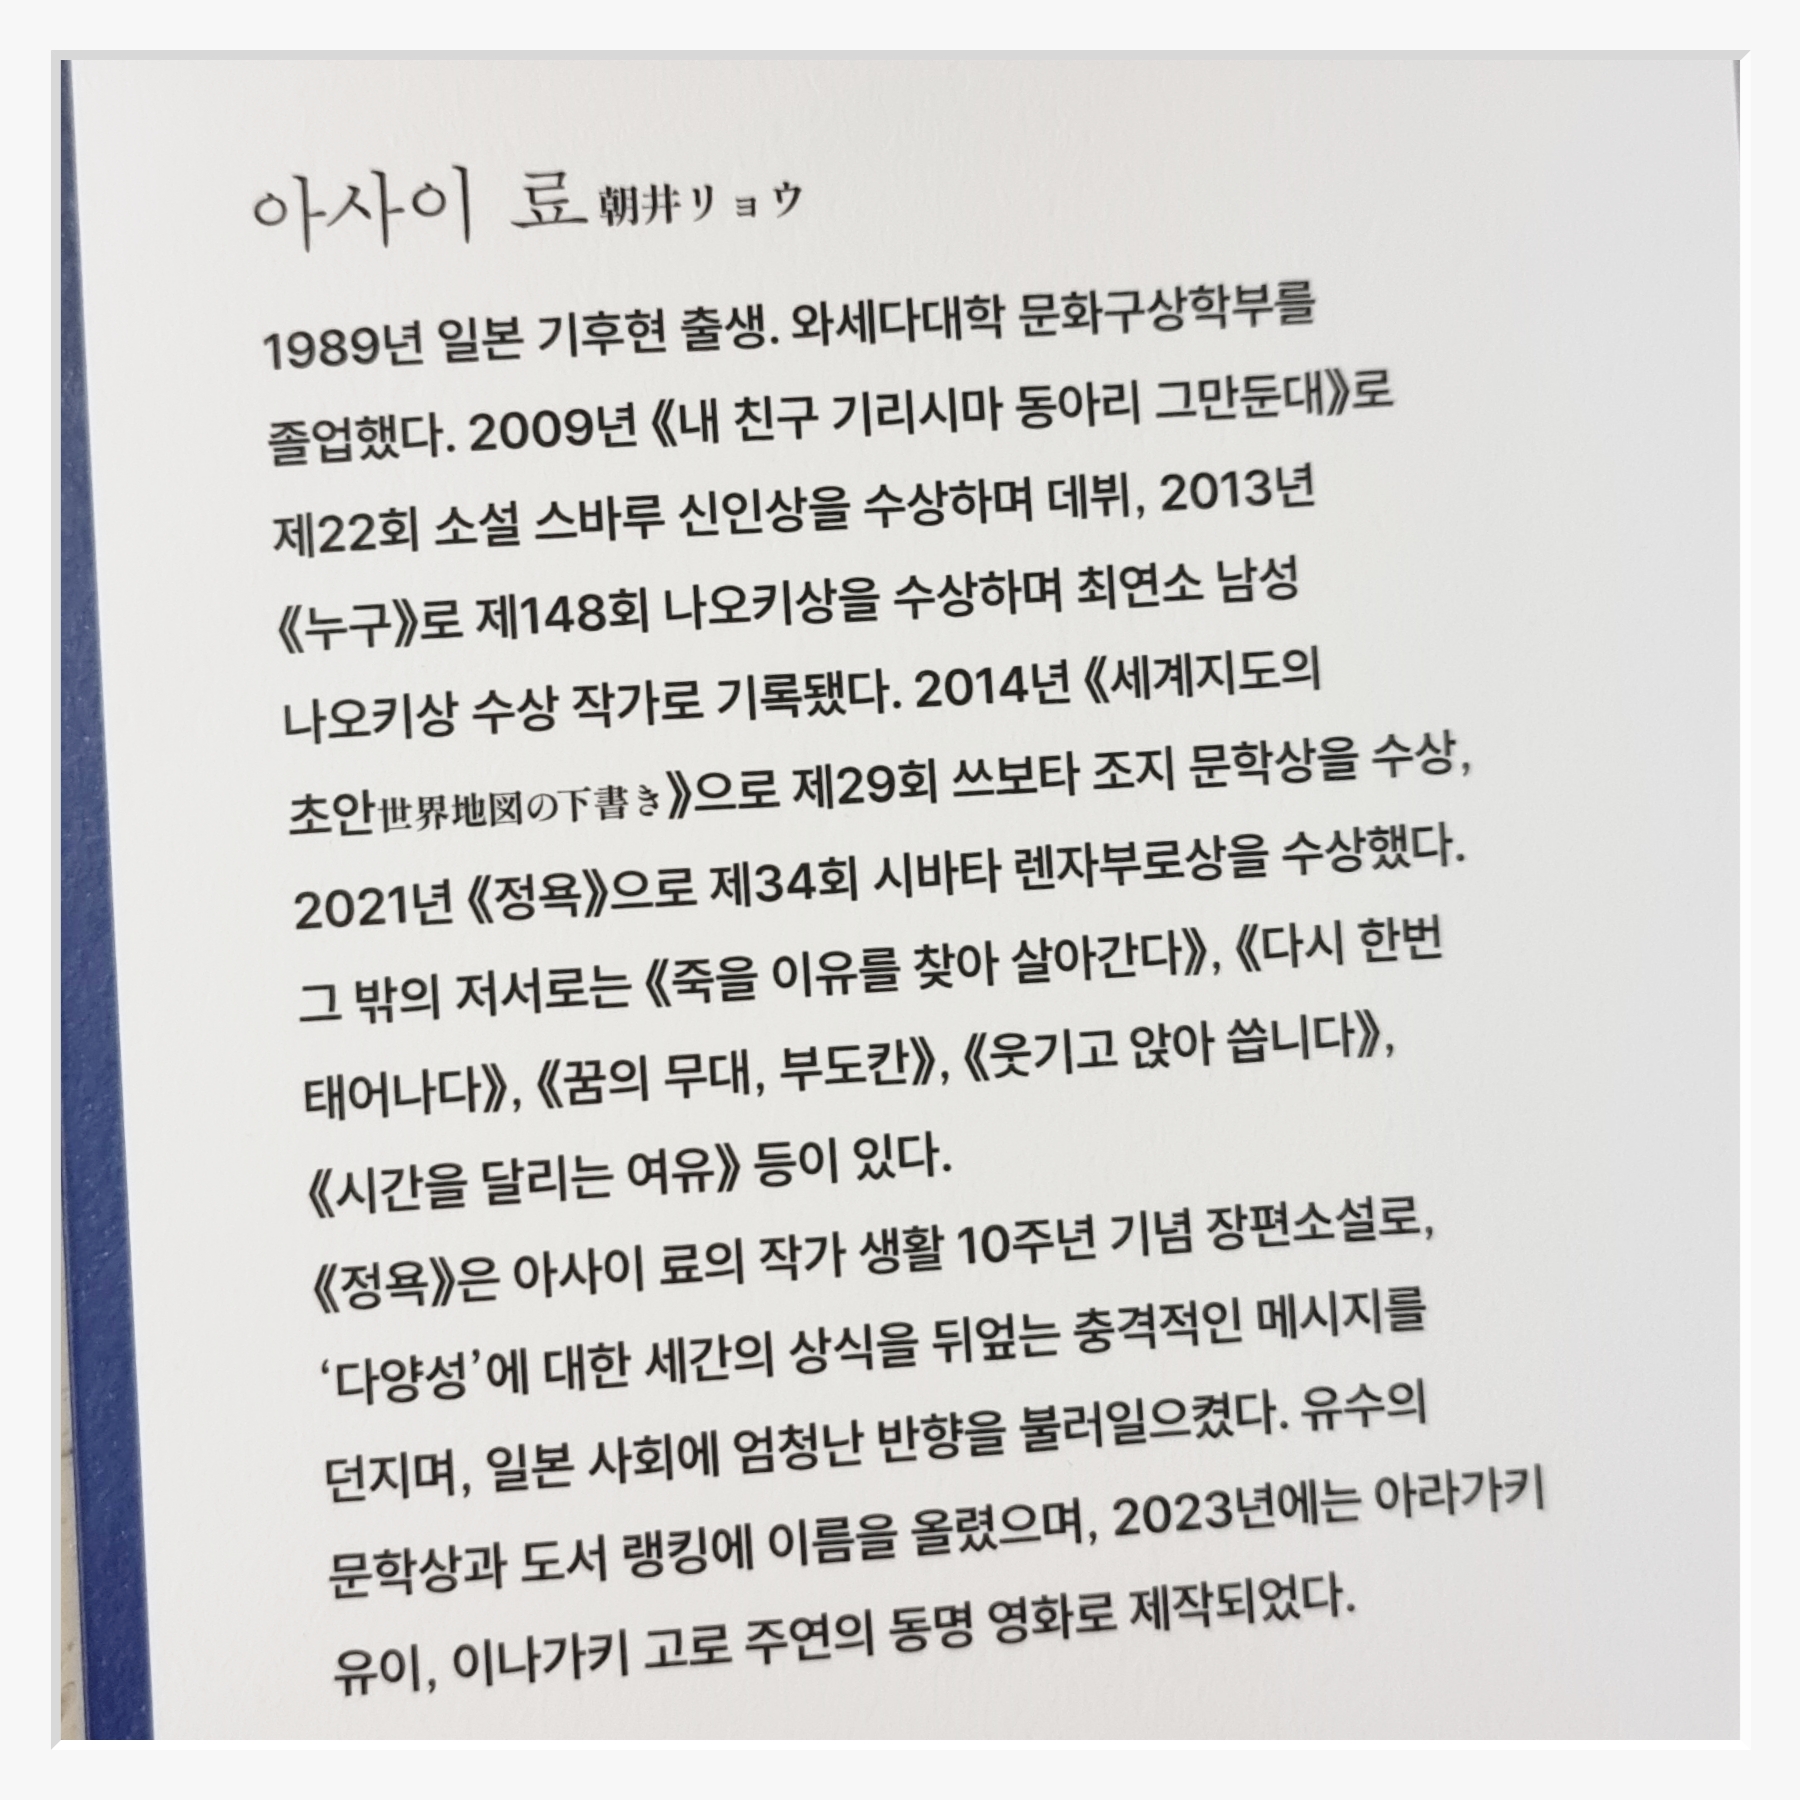 아사이 료朝井リョウ
1989년 일본 기후현 출생. 와세다대학 문화구상학부를
졸업했다. 2009년 《내 친구 기리시마 동아리 그만둔대》로
제22회 소설 스바루 신인상을 수상하며 데뷔, 2013년
《누구》로 제148회 나오키상을 수상하며 최연소 남성
나오키상 수상 작가로 기록됐다. 2014년 《세계지도의
초안世界地図の下書き》으로 제29회 쓰보타 조지 문학상을 수상,
2021년 《정욕》으로 제34회 시바타 렌자부로상을 수상했다.
그 밖의 저서로는 《죽을 이유를 찾아 살아간다》, 《다시 한번
태어나다》, 《꿈의 무대, 부도칸》, 《웃기고 앉아 씁니다》,
《시간을 달리는 여유》 등이 있다.
《정욕》은 아사이 료의 작가 생활 10주년 기념 장편소설로,
‘다양성’에 대한 세간의 상식을 뒤엎는 충격적인 메시지를
던지며, 일본 사회에 엄청난 반향을 불러일으켰다. 유수의
문학상과 도서 랭킹에 이름을 올렸으며, 2023년에는 아라가키
유이, 이나가키 고로 주연의 동명 영화로 제작되었다.